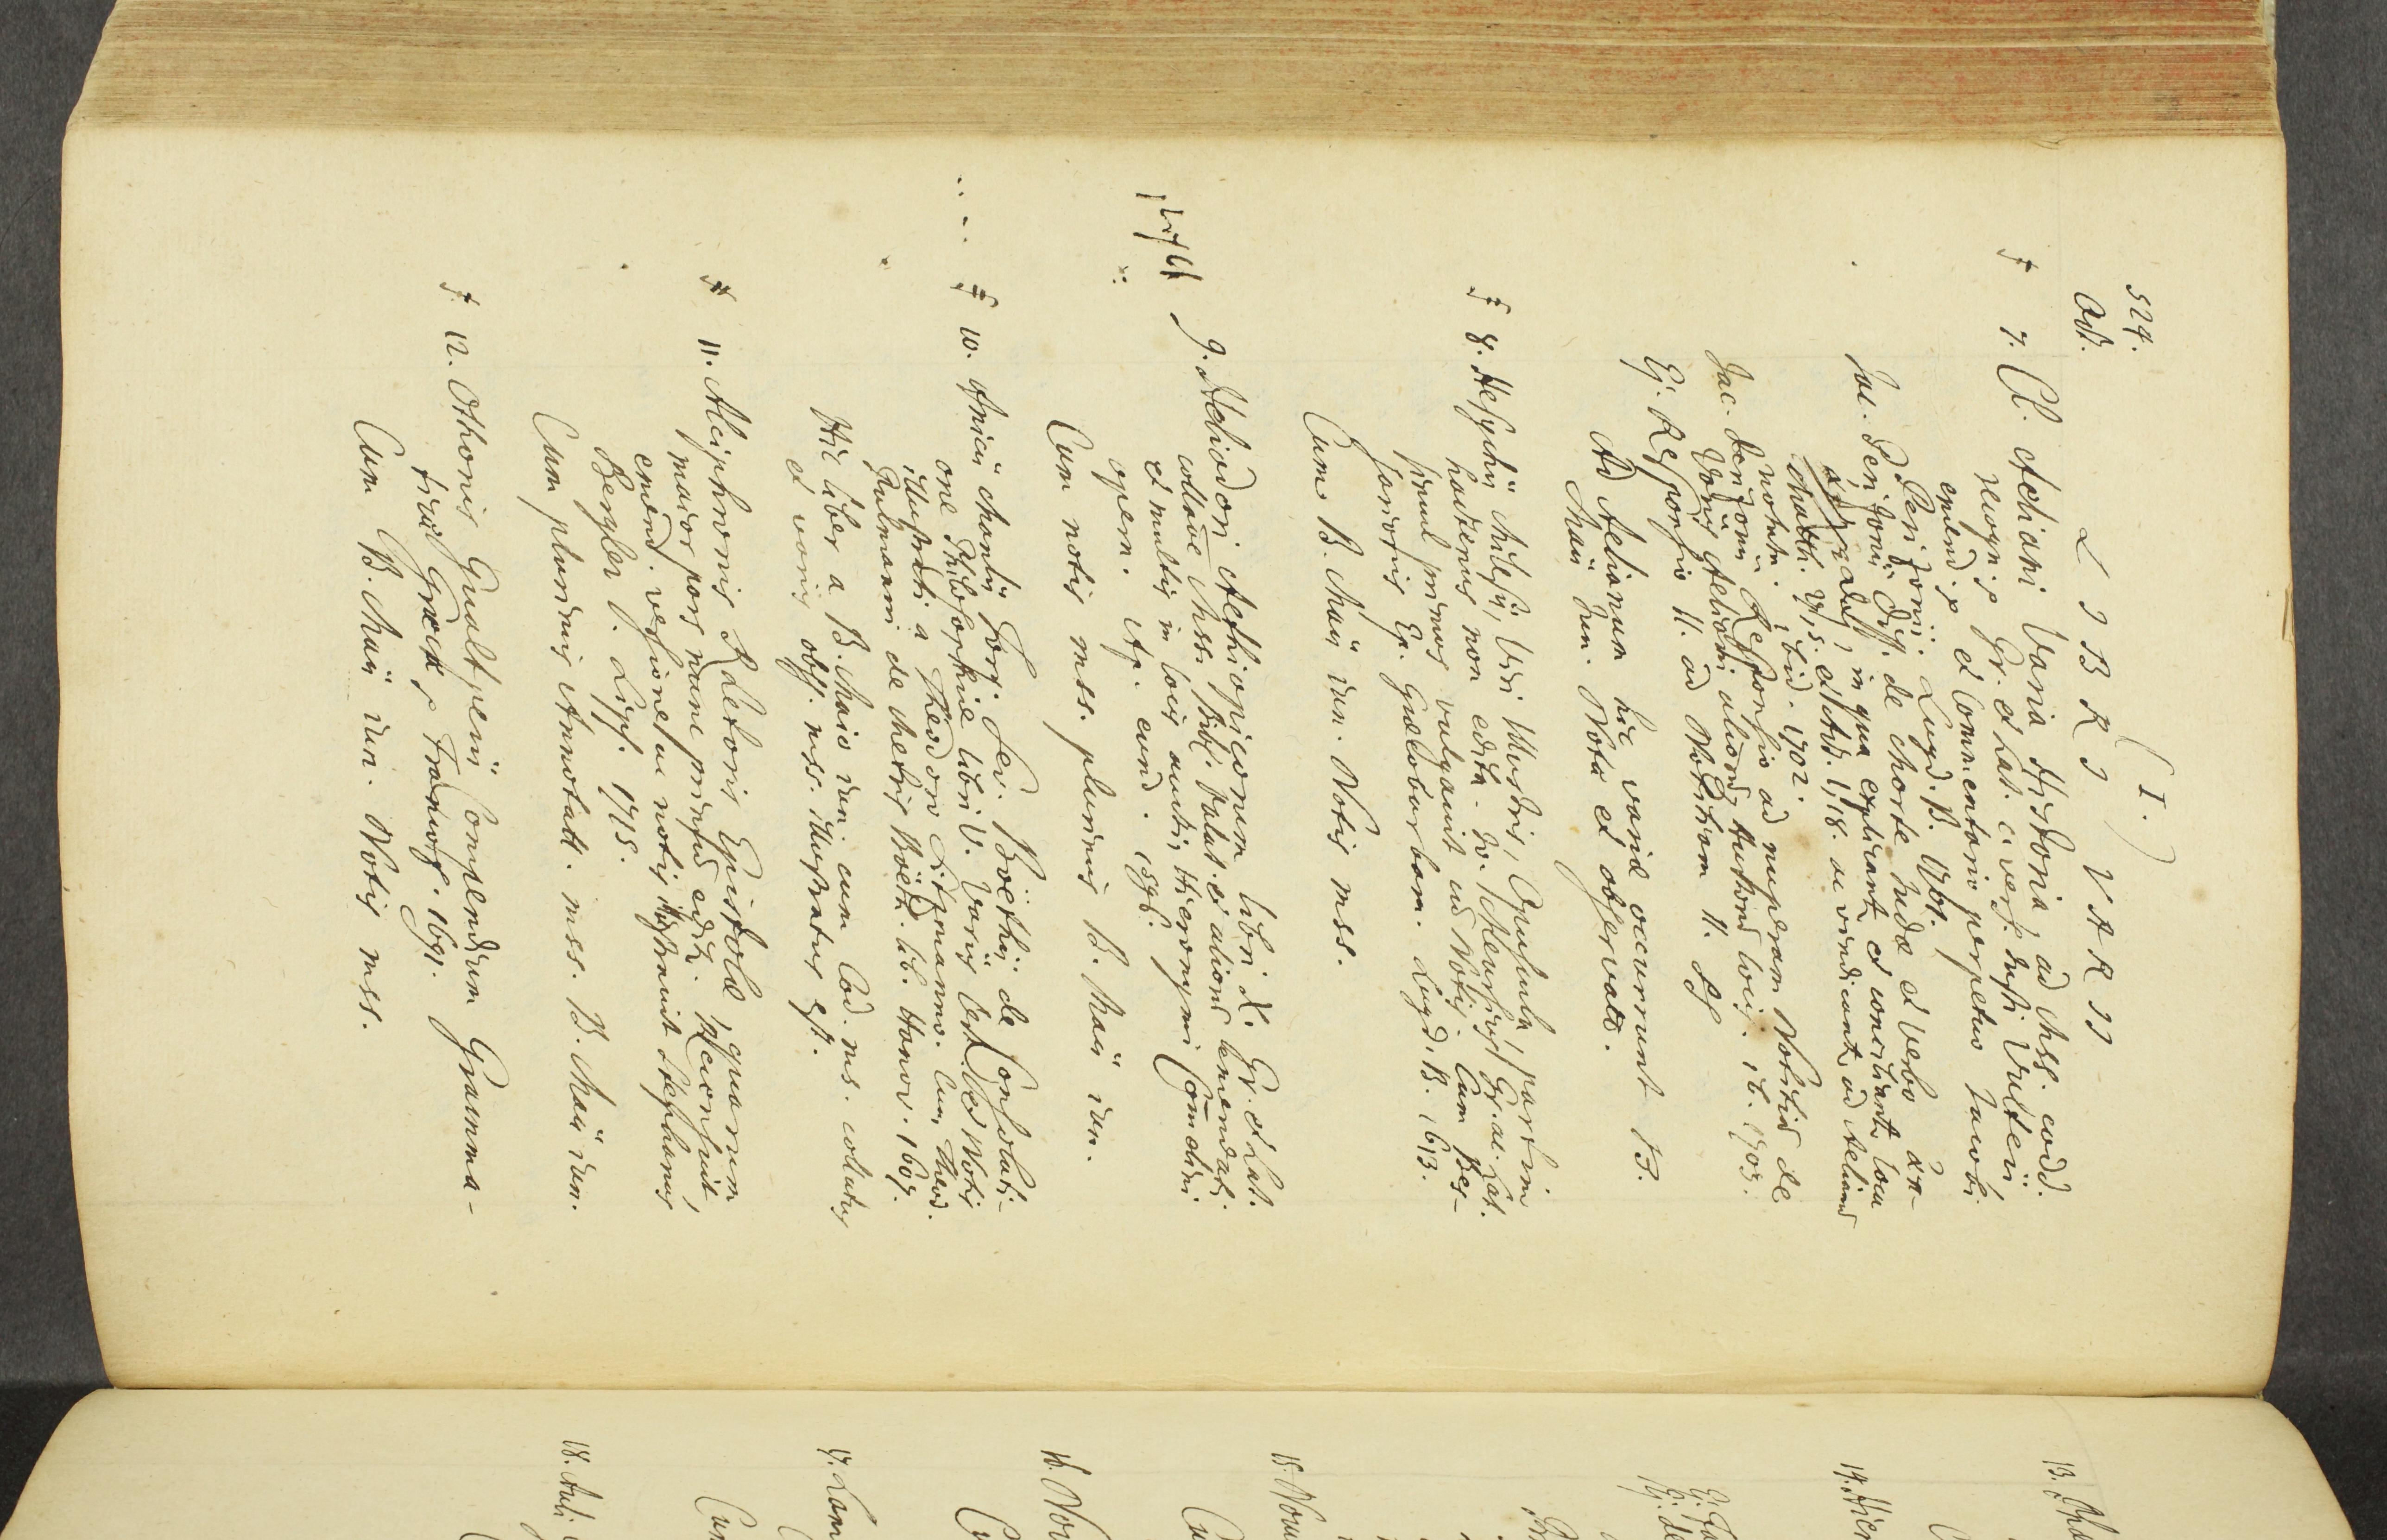 524.
(I.)
LIBRI VARII
Oct.
‡ 7. Cl. Aeliani Varia Historia, ad Mss. codd.
recogn. & Gr. et Lat. c. vers. Justi Vulteii,
emend. & et Commentario perpetuo Jacobi
Perizonii. Lugd. B. 1701.
Jac. Perizonii Diss. de Morte Judæ et verbo ἀπ-
in qua explicantur et conciliantur loca
Matth. 27, 5. et Act. 1, 18. ac vindicantur ad Aelianum
notata. ibid. 1702.
Jac. Perizonii Responsio ad nuperam Notitiam de
variis Aeliani aliorumq. auctorum locis. ib. 1703.
Ej. Responsio II. ad Notitiam II.
Ad Aelianum hic variæ occurrunt B.
Maii Jun. Notæ et observatt.
‡ 8. Hesychii Milesii, Viri Illustris, Opuscula, partim
hactenus non edita. Io. Meursius Gr. ac Lat.
simul primus vulgavit cum Notis. Cum Bes-
sarionis Ep. Græcobarbara. Lugd. B. 1613.
Cum B. Maii iun. Notis mss.
9. Heliodori Aethiopicorum libri X. Gr. et Lat.
collatione Mss. Bibl. Palat. et aliorum emendati
et multis in locis aucti, Hieronymi Com̄elini
opera. Ap. eund. 1596.
Cum notis mss. plurimis B. Maii iun.
‡ 10. Anicii Manlii Torq. Sev. Boëthii de Consolati-
one Philosophiæ libri V. Variis Lect. et Notis
illustrati a Theodoro Sitzmanno. Cum Theod.
Pulmanni de Metris Boëth. lib. Hanov. 1607.
Hic liber a B. Maio iun. cum Cod. ms. collatus
et variis obss. mss. illustratus est.
11. Alciphronis Rhetoris Epistolæ, quarum
maior pars nunc primum edit. Recensuit,
emend. versione ac notis illustravit Stephanus
Bergler. Lips. 1715.
Cum plurimis Annotatt. mss. B. Maii iun.
‡ 12. Othonis Gualtperii Compendium Gramma-
ticæ Græcæ, Francof. 1691.
Cum B. Maii iun. Notis mss.
13.
14. Hier
15. Nou
16. Nov
17. Lam
18. Auli